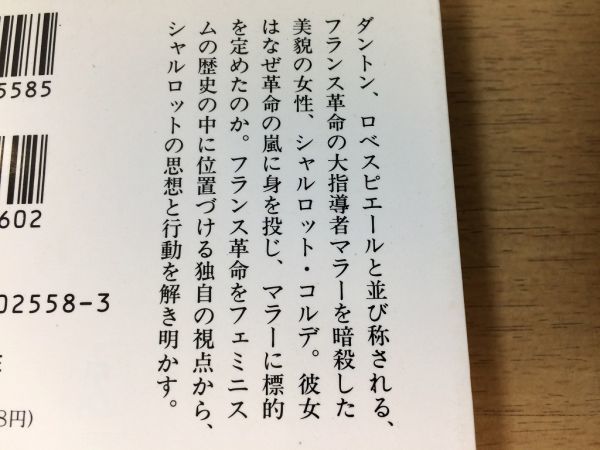 ダントン、ロベスピエールと並び称される、
フランス革命の大指導者マラーを暗殺した
美貌の女性、シャルロット・コルデ。彼女
はなぜ革命の嵐に身を投じ、マラーに標的
を定めたのか。フランス革命をフェミニス
ムの歴史の中に位置づける独自の視点から、
シャルロットの思想と行動を解き明かす。
5585
602
02558-3
8円)